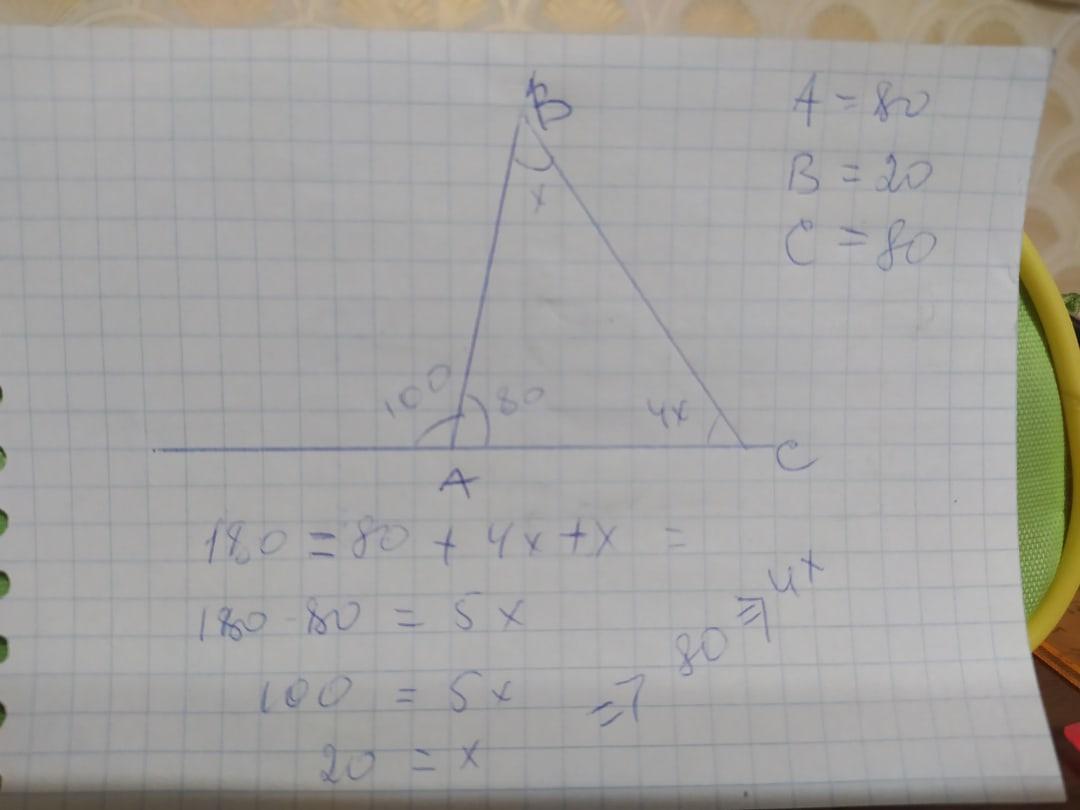 B
x
A = 80
B = 20
C = 80
100
80
4x
A
C
180 = 80 + 4x + x =
180 - 80 = 5x
100 = 5x => 80 => 4x
20 = x